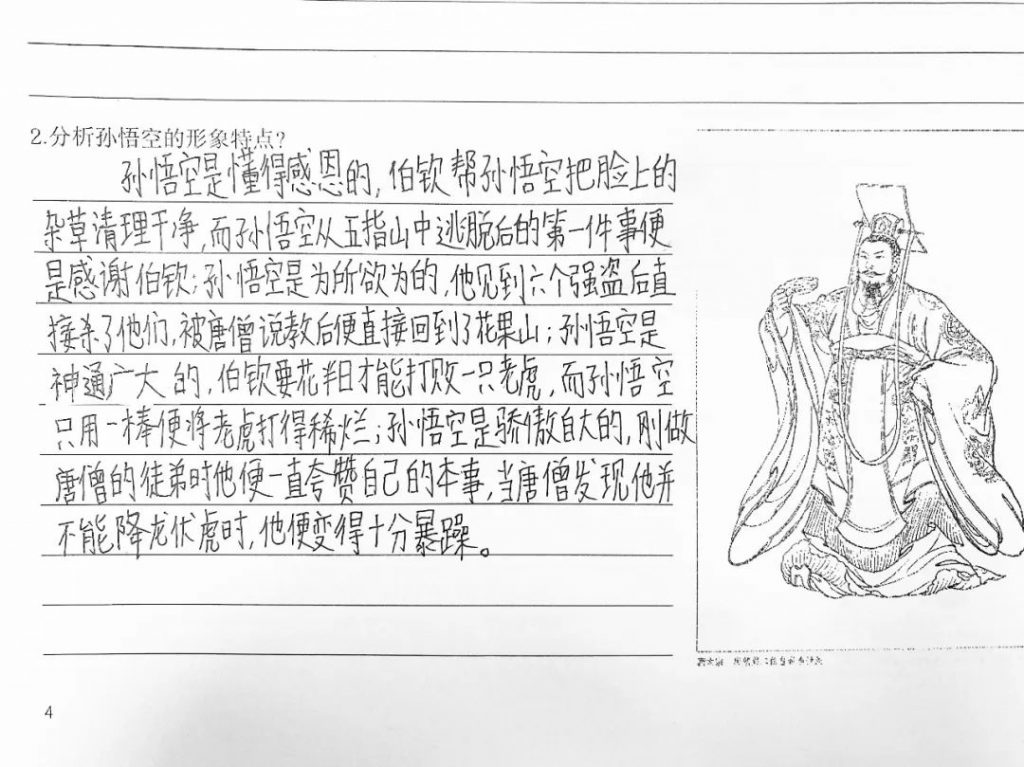 2.分析孙悟空的形象特点?
孙悟空是懂得感恩的,伯钦帮孙悟空把脸上的
杂草清理干净,而孙悟空从五指山中逃脱后的第一件事便
是感谢伯钦;孙悟空是为所欲为的,他见到六个强盗后直
接杀了他们,被唐僧说教后便直接回到了花果山;孙悟空是
神通广大的,伯钦要花半日才能打败一只老虎,而孙悟空
只用一棒便将老虎打得稀烂;孙悟空是骄傲自大的,刚做
唐僧的徒弟时他便一直夸赞自己的本事,当唐僧发现他并
不能降龙伏虎时,他便变得十分暴躁。
4